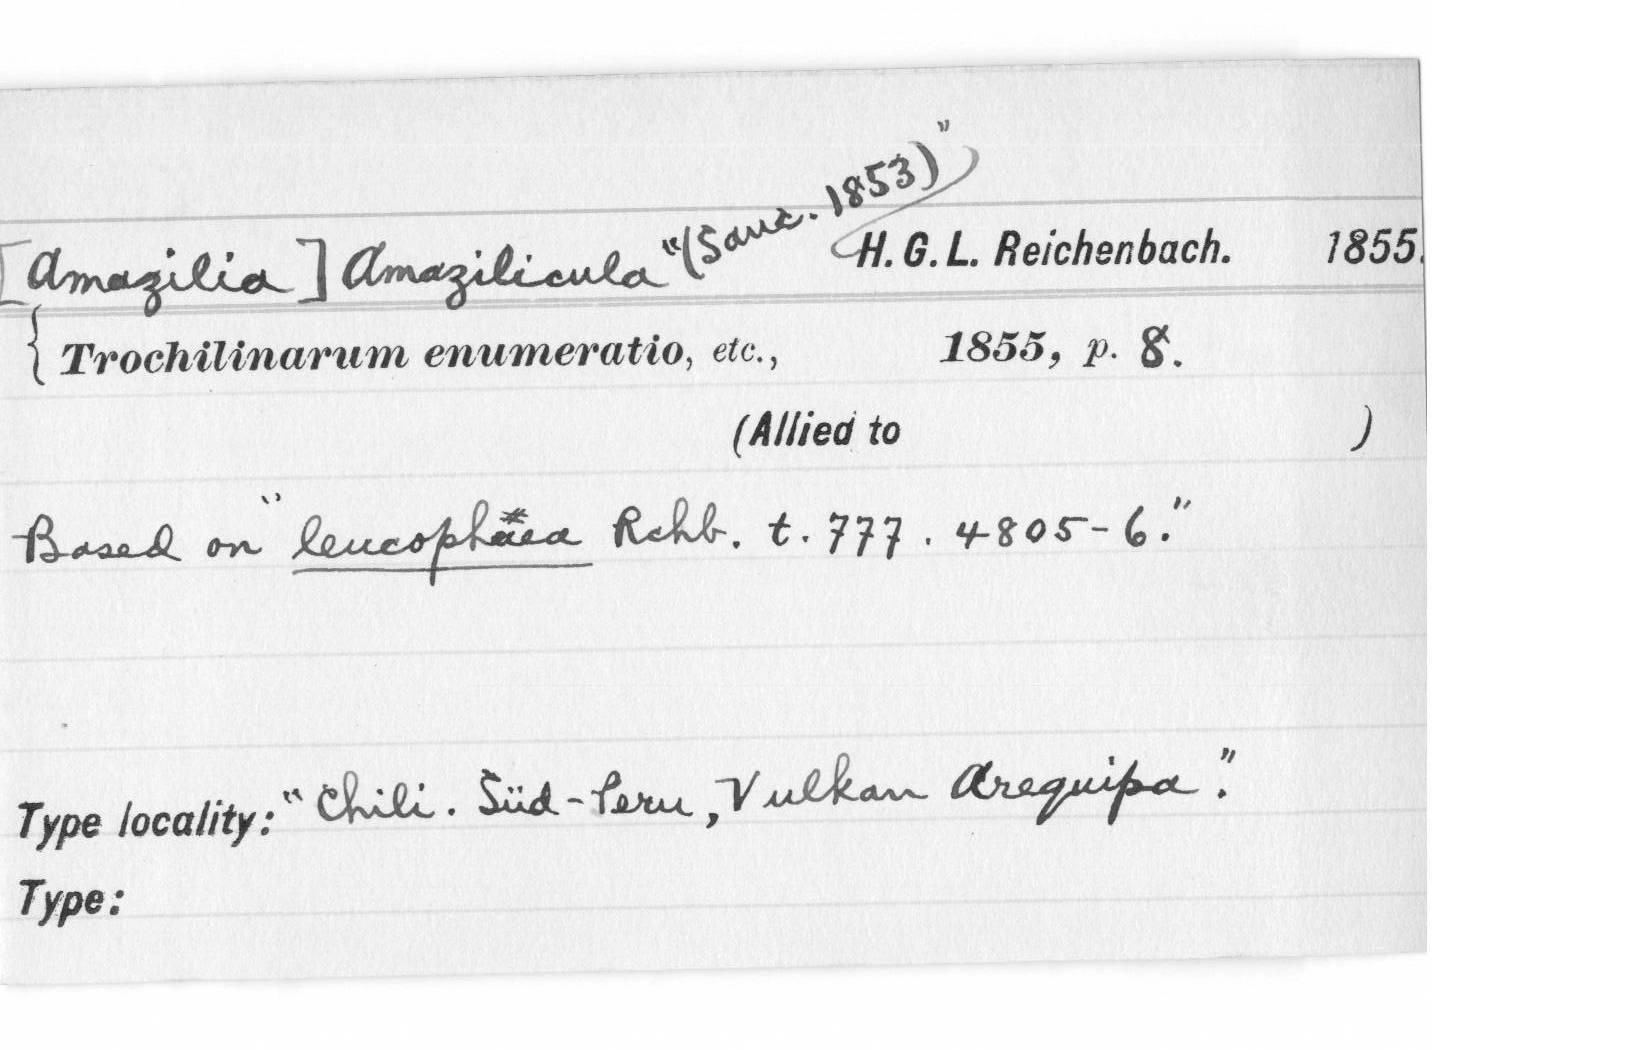 [Amazilia] Amazilicula "(Sauc. 1853)" H. G. L. Reichenbach. 1855.
{ Trochilinarum enumeratio, etc., 1855, p. 8.
(Allied to )
Based on "leucophäea Rchb. t. 777. 4805-6."
Type locality: "Chili. Süd-Peru, Vulkan Arequipa".
Type: